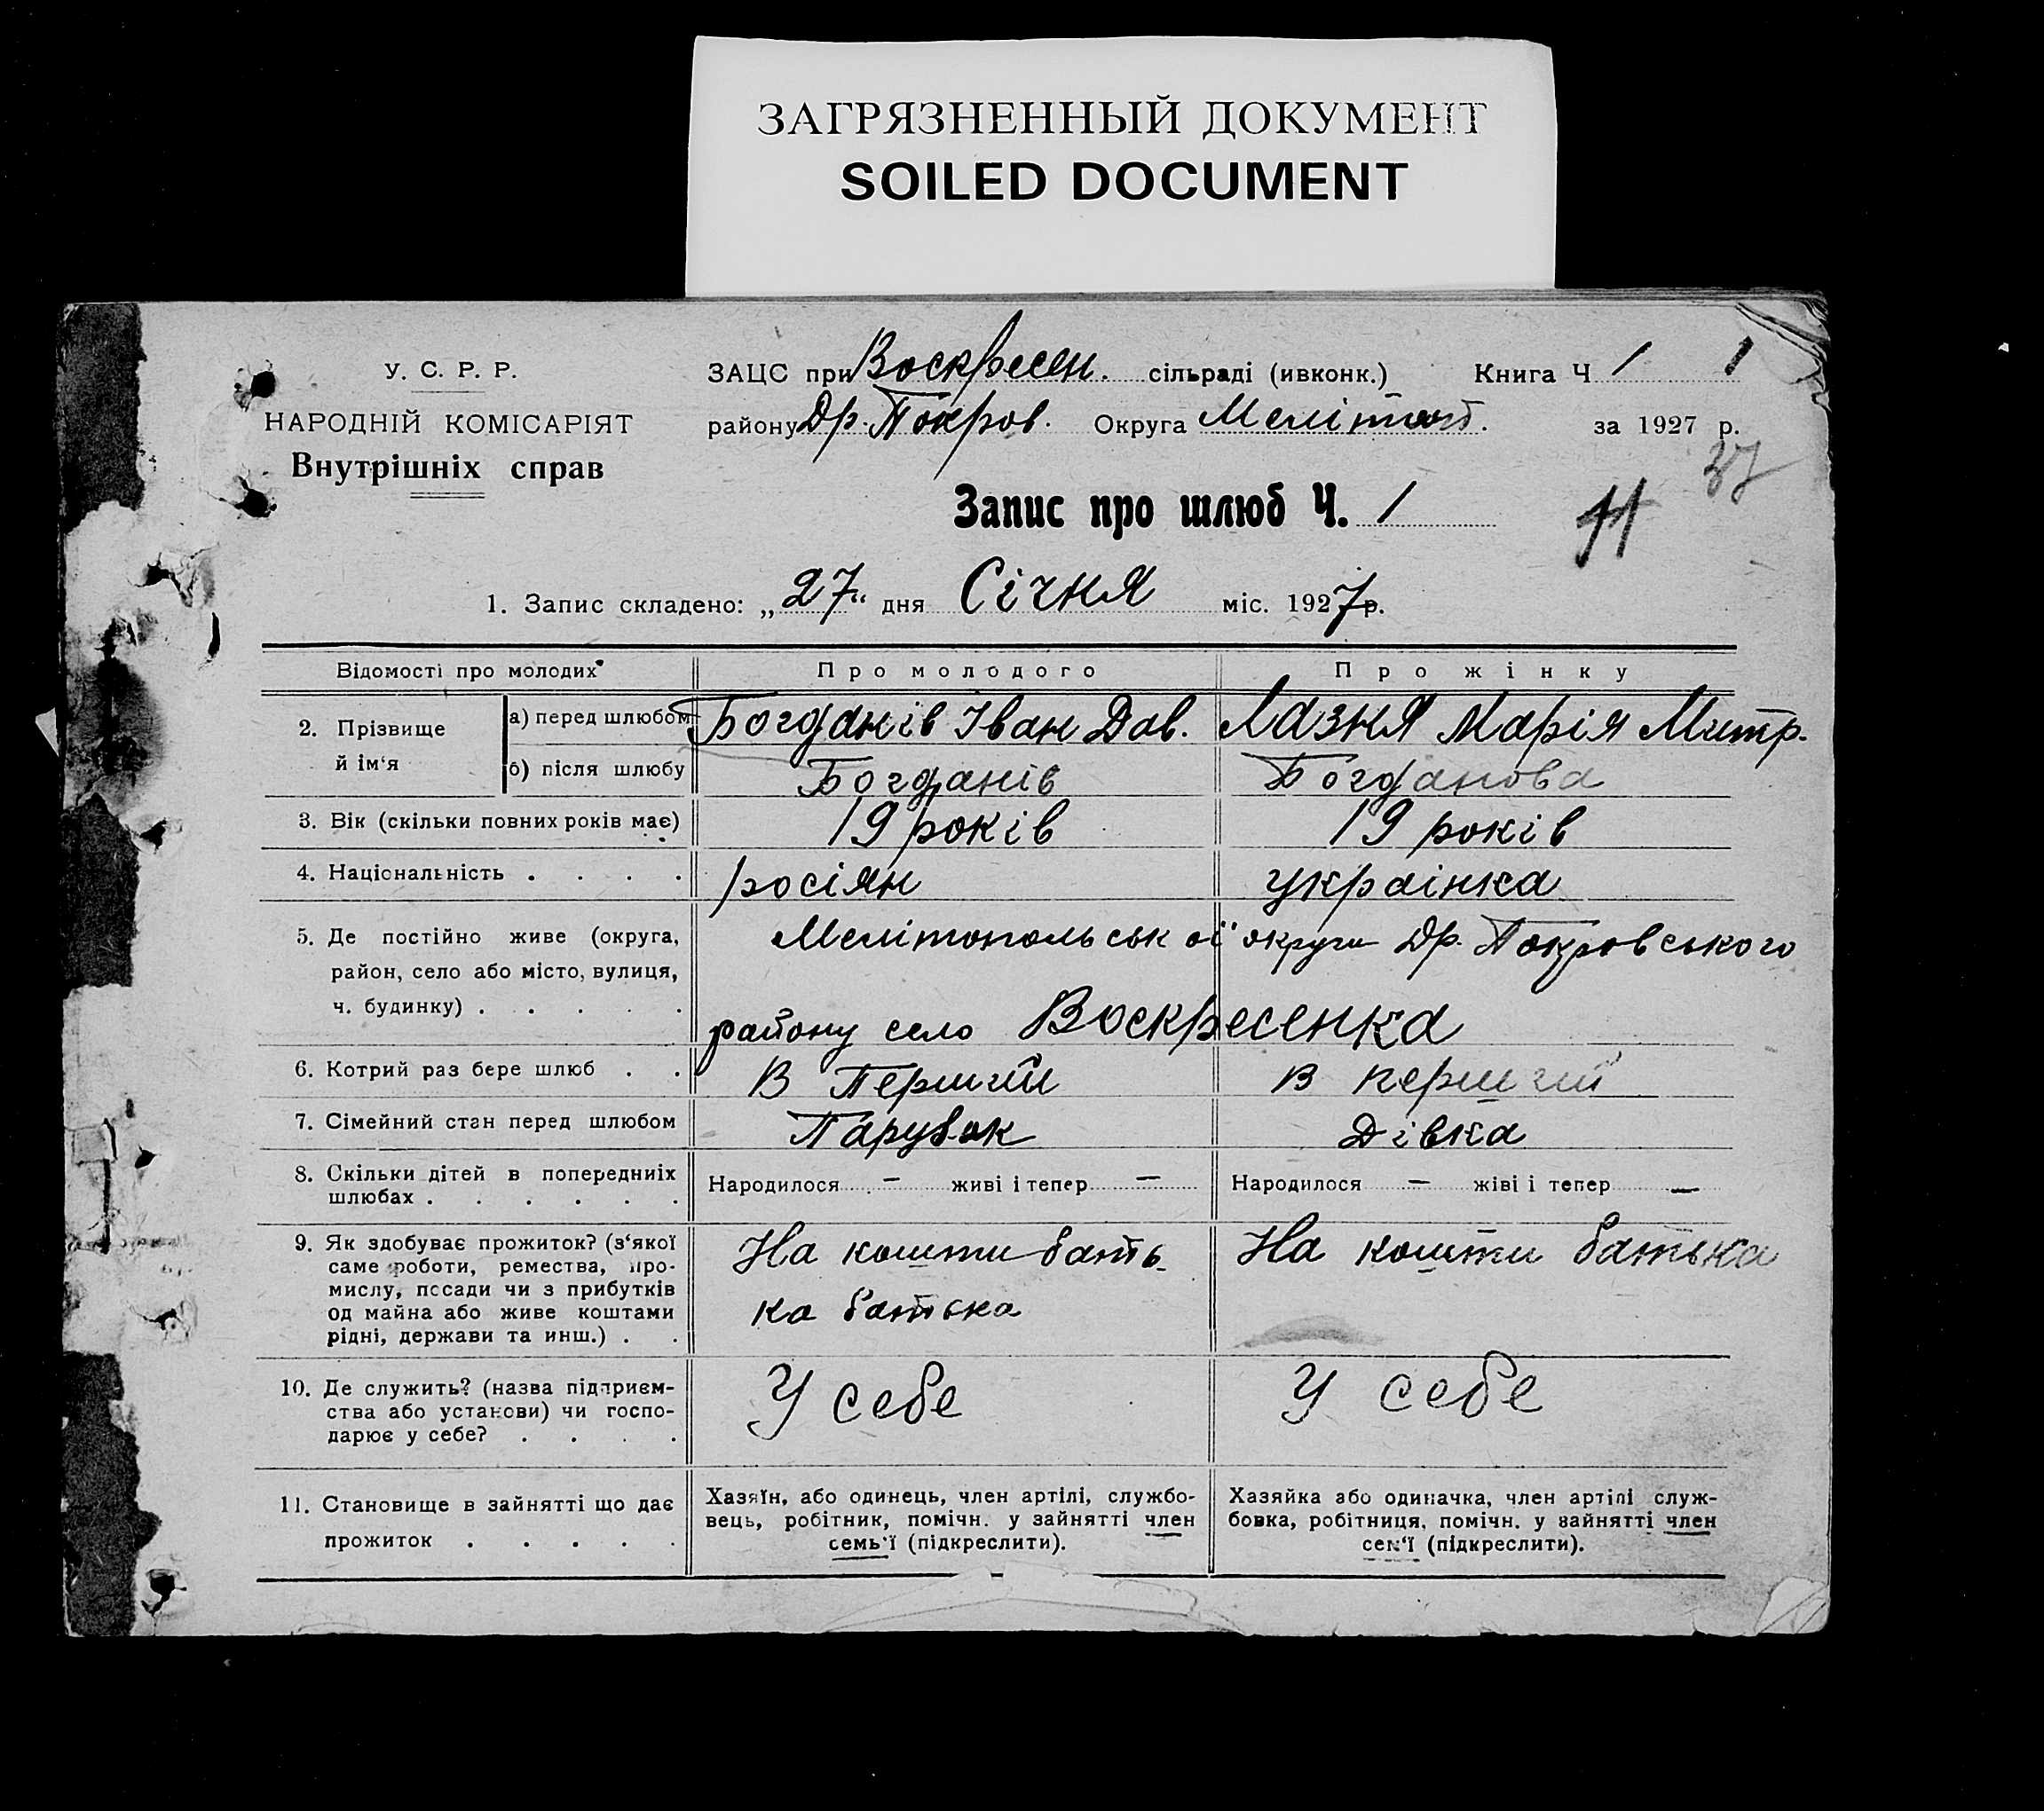 ЗАГРЯЗНЕННЫЙ ДОКУМЕНТ
SOILED DOCUMENT
У. С. Р. Р.
НАРОДНІЙ КОМІСАРІЯТ
Внутрішніх справ
ЗАЦС при Воскресен. сільраді (ивконк.) Книга Ч 1 1
району Др. Покров. Округа Меліт за 1927 р.
37
Запис про шлюб Ч. 1
11
1. Запис складено: „27“ дня Січня міс. 1927 р.
Відомості про молодих Про молодого Про жінку
2. Прізвище й ім‘я
а) перед шлюбом Богданів Іван Дав. Лазня Марія Митр.
б) після шлюбу Богданів Богданова
3. Вік (скільки повних років має) 19 років 19 років
4. Національність . . . . росіян українка
5. Де постійно живе (округа, Мелітопольської округи Др. Покровського
район, село або місто, вулиця,
ч. будинку) . . . . . району село Воскресенка
6. Котрий раз бере шлюб . . В Перший в перший
7. Сімейний стан перед шлюбом Парубок Дівка
8. Скільки дітей в попередниіх
шлюбах . . . . . . Народилося — живі і тепер — Народилося — жіві і тепер —
9. Як здобуває прожиток? (з‘якої На кошти бать- На кошти батька
саме роботи, ремества, про-
мислу, посади чи з прибутків
од майна або живе коштами ка батька
рідні, держави та инш.) . .
10. Де служить? (назва підприєм- У себе У себе
ства або установи) чи госпо-
дарює у себе? . . . .
11. Становище в зайнятті що дає
прожиток . . . . .
Хазяїн, або одинець, член артілі, службо-
вець, робітник, помічн. у зайнятті член
семь‘ї (підкреслити).
Хазяйка або одиначка, член артілі служ-
бовка, робітниця, помічн. у зайнятті член
сем‘ї (підкреслити).